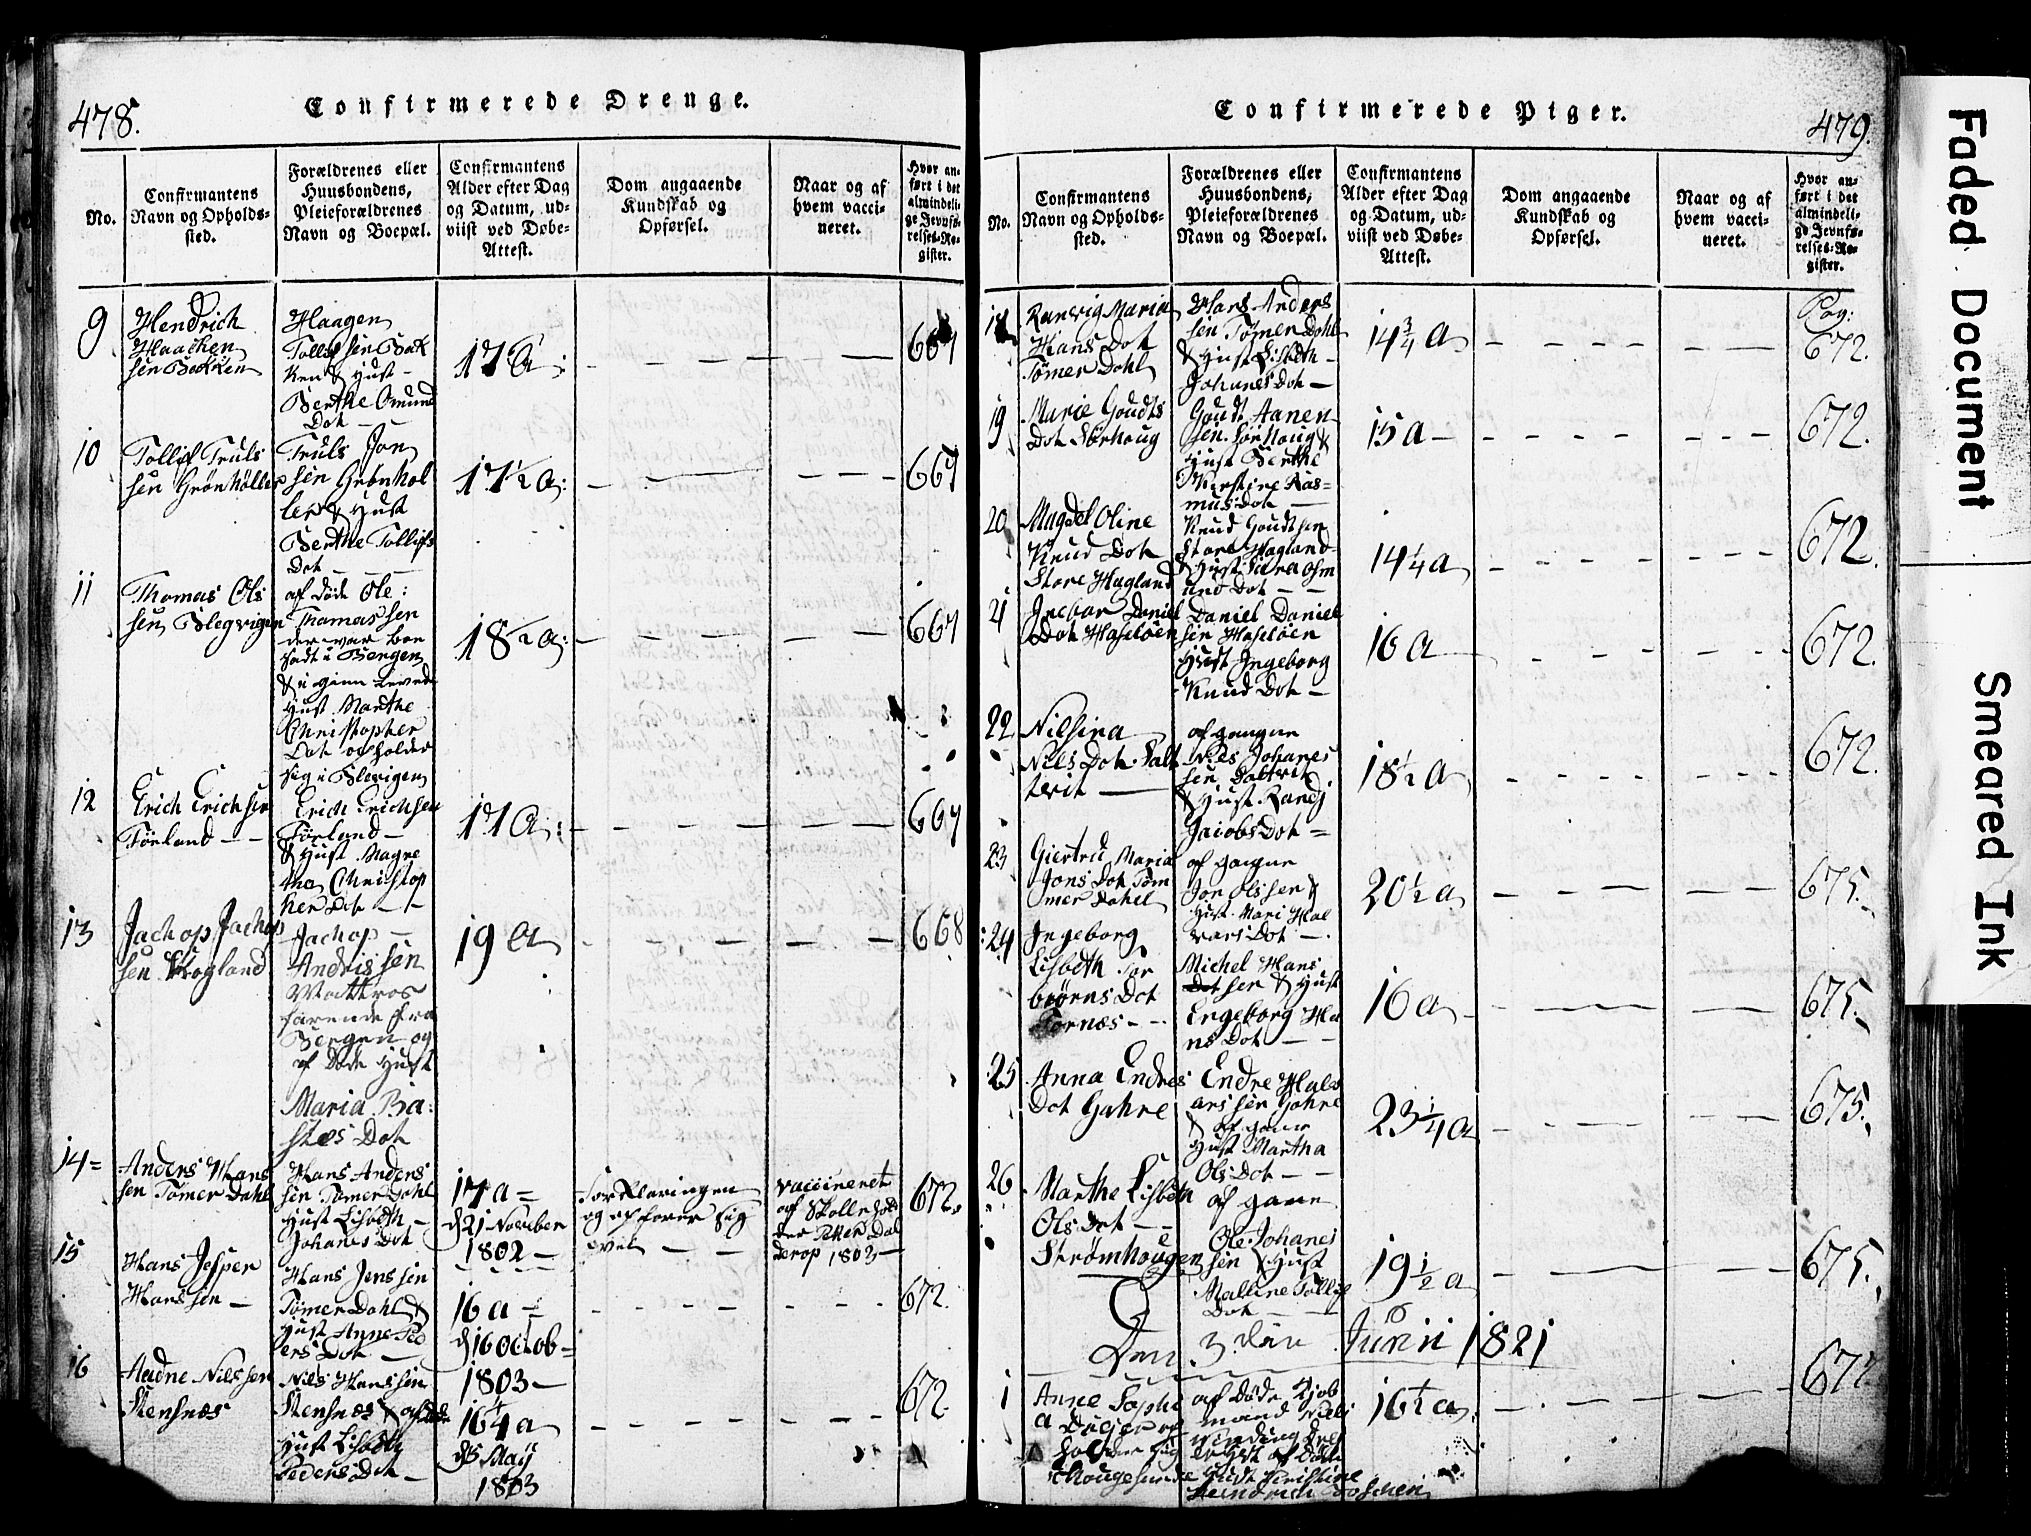 478.
Confirmerede Drenge.
No.
Confirmantens
Navn og Opholds-
sted.
Forældrenes eller
Huusbondens,
Pleieforældrenes
Navn og Boepæl.
Confirmantens
Alder efter Dag
og Datum, ud-
viist ved Døbe-
Attest.
Dom angaaende
Kundskab og
Opførsel.
Naar og af
hvem vacci-
neret.
Hvor an-
ført i det
almindeli-
ge Jevnfø-
relses-Re-
gister.
9
Hendrich
Haachen
sen Bakken
Haagen
Tollefsen Bak
ken & Hust
Berthe Omund
Dot
17 a:
667
10
Tollif Truls
sen Grönhölle
Truls Jon
sen Grönhol
ler & Hust
Berthe Tollifs
Dot
17½ a:
667
11
Thomas Ols
sen Blegvigen
af døde Ole:
Thomas sen
der var boe
hadt i Bergen
Hust Marthe
Christopher
Dot opholder
sig i Blevigen
18½ a:
667
12
Erich Erichsen
Førland
Erich Erichsen
Førland
& Hust Magre
tha Christop
her Dot
17 a:
667
13
Jachop Jachop
sen Skogland
Jachop
Andrissen
Mattros
farende fra
Bergen og
af døde Hust
Maria Ba:
stes Dot
19 a
668
14=
Anders Hans
sen Tømer Dahl
Hans Anders
sen Tømer Dahl
Hust Lisbeth
Johanes Dot
17 a=
d 21 November
1802
Forklaringen
og opfører sig
vel
vaccineret
af Skolleholl
der Peder Dal
derop 1803
672.
15
Hans Jesper
Hanssen
Hans Jenssen
Tømer Dahl &
Hust Anne Pe
ers Dot
16 a
d 16 Octob=
1803
672.
16
Audne Nilssen
Stensnæs
Nils Hanssen
Stensnæs & af døde
Hust Lisbeth
Peders Dot
16¼ a
d 5 May
1803
672.
Confirmerede Piger.
479.
No.
Confirmantens
Navn og Opholds-
sted.
Forældrenes eller
Huusbondens,
Pleieforældrenes
Navn og Boepæl.
Confirmantens
Alder efter Dag
og Datum, ud-
viist ved Døbe-
Attest.
Dom angaaende
Kundskab og
Opførsel.
Naar og af
hvem vacci-
neret.
Hvor an-
ført i det
almindeli-
ge Jevnfø-
relses-Re-
gister.
18
Ranvig Maria
Hans Dot
Tømer Dahl
Hans Anders
sen Tømer Dahl
& Hust Lisbeth
Johanes Dot
14¾ a
Pag:
672.
19
Marie Goudts
Dot Sørhoug
Goudt Aanen
sen Sørhoug &
Hust Berthe
Kirstine Ras=
mus Dot
15 a
672.
20
Magdel Oline
Knud Dot
Store Hagland
Knud Goudtsen
Store Hagland
& Hust Siera Osm
und Dot
14¼ a
672.
21
Daniel
Dot Haseløen
Daniel Daniel
sen Haseløen
Hust Ingeborg
Knud Dot
16 a
672.
22
Nilsina
Nils Dot Salt
tevit
af gangne
Nils Johanes
sen Saltvit
& Hust Randi
Jacobs Dot =
18½ a
672.
23
Giertru Maria
Jons Dot Tøm
mer Dahel
af gangne
Jon Olssen &
Hust Mari Hal
vars Dot
20½ a
675.
24
Ingeborg
Lisbeth Tor
biørns Dot
Tornæs
Michel Hans
sen & Hust
Engeborg Ha
ns Dot
16 a
675.
25
Anna Endres
Dot Gahre
Endre Halv
arssen Gahre
& af gane
Hust Martha
Ols Dot
23¼ a
675.
26
Marthe Lisbeth
Ols Dot
Strømhougen
af gane
Ole Johanes
sen & Hust
Malline Tollif
Dot
19½ a
675.
Den 3 die Junii 1821
1
Anne Sophi
a
holder sig
Hougesunde
af døde Kjøb
mand Niels
Hust Kristine
Heindrich
16½ a
677
Faded Document
Smeared Ink